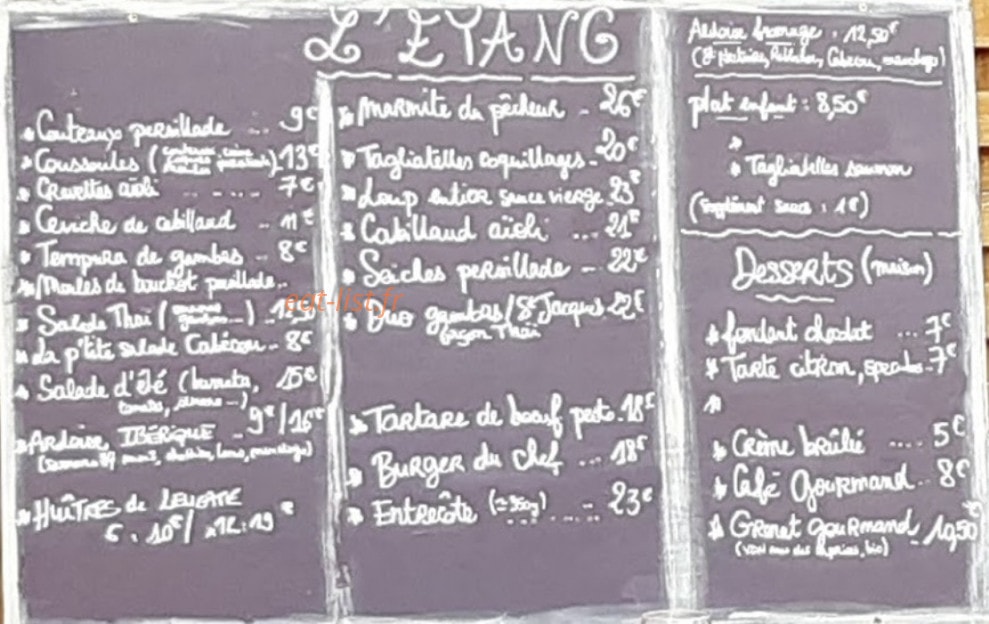 L'ÉTANG
Couteaux persillade ... 9€
Coussoules ( 13€
Crevettes aïoli ... 7€
Ceviche de cabillaud .. 11€
Tempura de gambas - 8€
Moules de bouchot persillade..
Salade Thaï (
La p'tite salade Cabécou - 8€
Salade d'été (burrata, 15€
tomates,
Ardoise IBÉRIQUE .. 9€/16€
HUÎTRES de LEUCATE
6 : 10€/ 12 : 19€
Marmite du pêcheur - 26€
Tagliatelles coquillages - 20€
Loup entier sauce vierge 23€
Cabillaud aïoli ... 21€
Seiches persillade - 22€
Duo gambas/St Jacques 22€
façon Thaï
Tartare de bœuf pesto - 18€
Burger du chef ... 18€
Entrecôte (≈350g) ... 23€
Ardoise fromage : 12,50€
plat enfant : 8,50€
Tagliatelles saumon
(Supplément sauce : 1€)
Desserts (maison)
fondant chocolat ... 7€
Tarte citron, 7€
Crème brûlée .... 5€
Café Gourmand .. 8€
Grenet gourmand - 10,50€
eat-list.fr